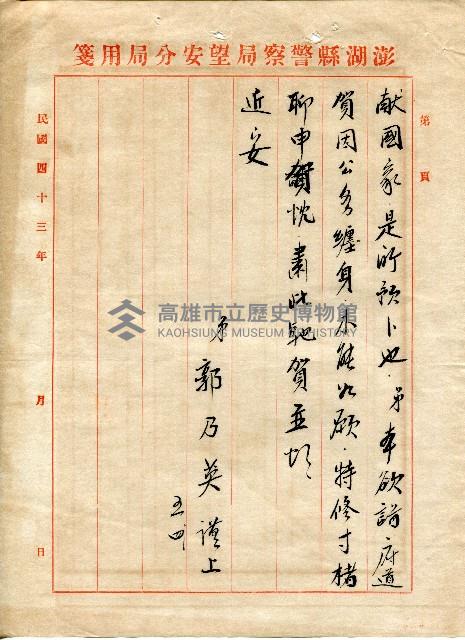 澎湖縣警察局望安分局用箋
第　頁
献國家．是所預卜也．弟本欲詣府道
賀因公务纏身．未能如願．特修寸楮
聊申賀忱．肅此馳賀並頌
近安
弟郭乃英謹上
五．四
民國四十三年　月　日
高雄市立歷史博物館
KAOHSIUNG MUSEUM OF HISTORY